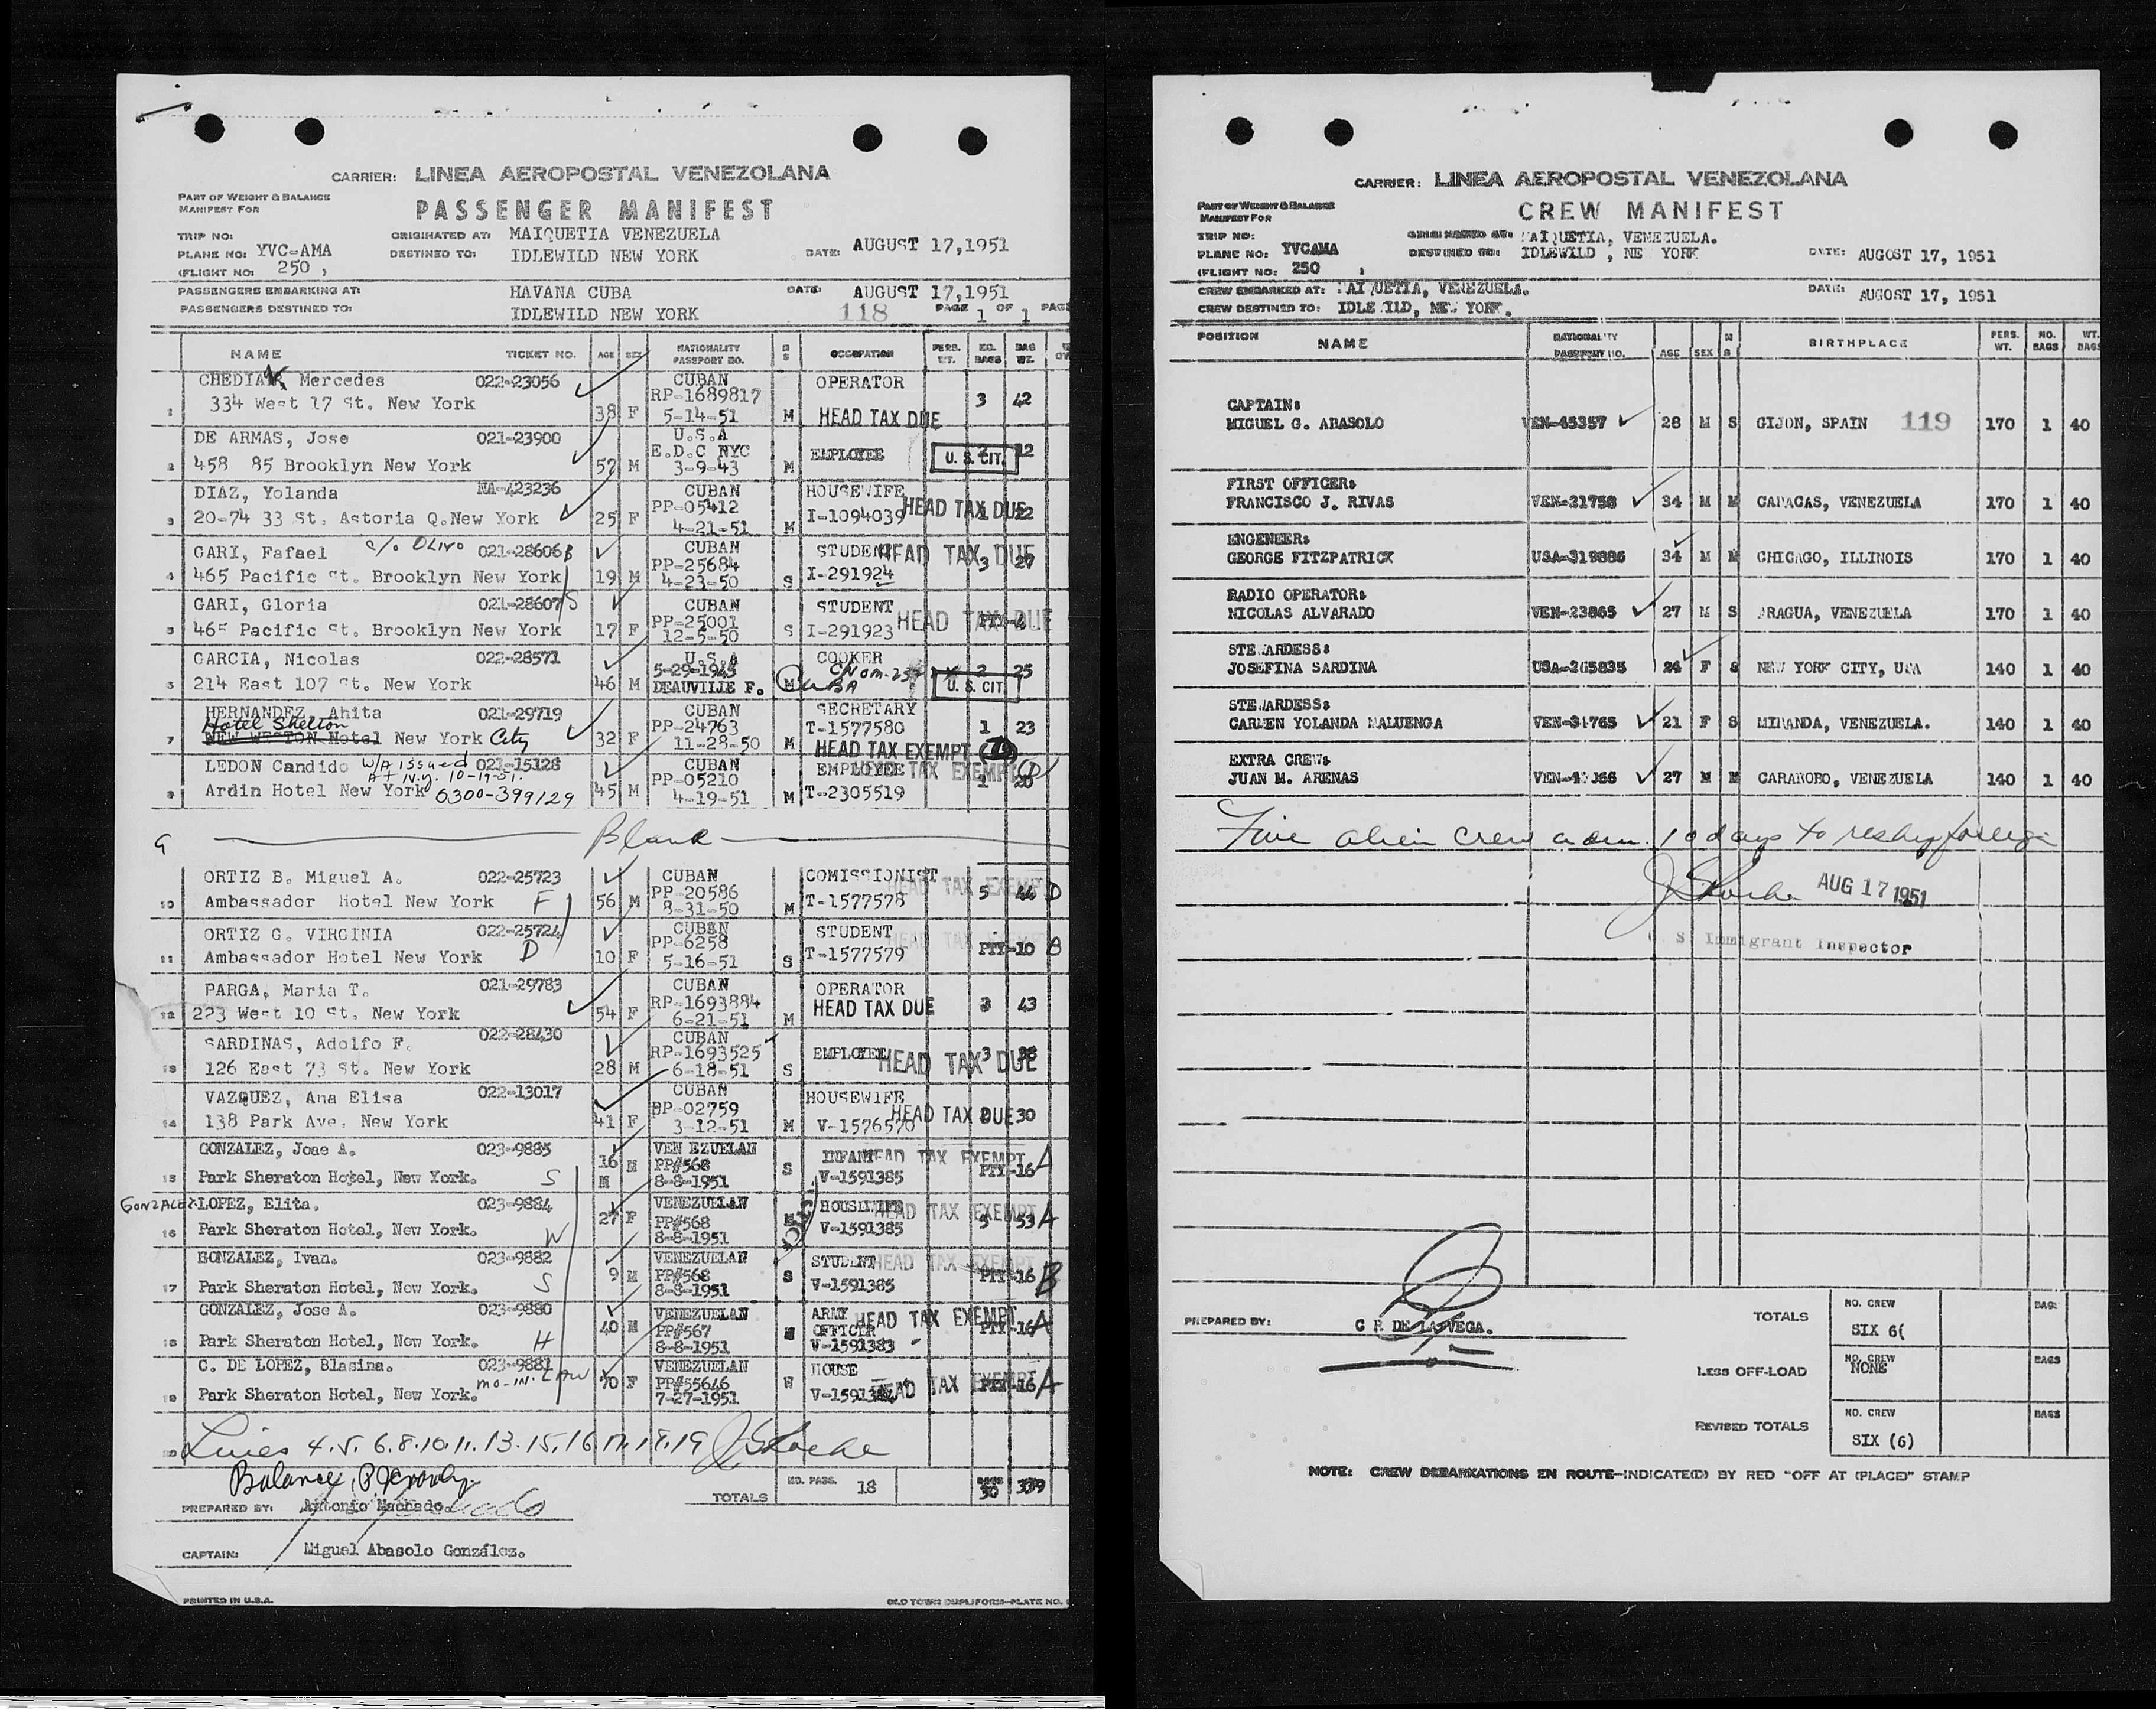 CARRIER: LINEA AEROPOSTAL VENEZOLANA
PART OF WEIGHT & BALANCE
MANIFEST FOR
PASSENGER MANIFEST
TRIP NO:
ORIGINATED AT: MAIQUETIA VENEZUELA
PLANE NO: YVC-AMA
DESTINED TO: IDLEWILD NEW YORK
DATE: AUGUST 17,1951
(FLIGHT NO: 250 )
PASSENGERS EMBARKING AT: HAVANA CUBA DATE: AUGUST 17,1951
PASSENGERS DESTINED TO: IDLEWILD NEW YORK 118 PAGE 1 OF 1 PAGE
NAME TICKET NO. AGE SEX NATIONALITY PASSPORT NO. M S OCCUPATION PERS. WT. NO. BAGS BAG WT.
CHEDIAK Mercedes 022-23056 CUBAN OPERATOR
334 West 17 St. New York RP-1689817 3 42
1 38 F 5-14-51 M HEAD TAX DUE
DE ARMAS, Jose 021-23900 U.S.A
E.D.C NYC EMPLOYEE
2 458 85 Brooklyn New York 57 M 3-9-43 M U. S. CIT. 12
DIAZ, Yolanda NA-423236 CUBAN HOUSEWIFE
PP-05412 HEAD TAX DUE
3 20-74 33 St. Astoria Q.New York 25 F 4-21-51 M I-1094039 1 22
GARI, Fafael c/o Olivo 021-28606 CUBAN STUDENT HEAD TAX DUE
PP-25684 3 27
4 465 Pacific St. Brooklyn New York 19 M 4-23-50 S I-291924
GARI, Gloria 021-28607 S CUBAN STUDENT
PP-25001 HEAD TAX DUE
5 465 Pacific St. Brooklyn New York 17 F 12-5-50 S I-291923 PTY-4
GARCIA, Nicolas 022-28571 U.S.A COOKER
5-29-1945 2 25
6 214 East 107 St. New York 46 M DEAUVILLE F. M Cuba U. S. CIT.
HERNANDEZ, Ahita 021-29719 CUBAN SECRETARY
Hotel Shelton PP-24763 T-1577580 1 23
7 NEW WESTON Hotel New York City 32 F 11-28-50 M HEAD TAX EXEMPT (D)
LEDON Candido W/A issued 021-15128 CUBAN EMPLOYEE HEAD TAX EXEMPT (D)
At N.Y. 10-19-51. PP-05210 1 20
8 Ardin Hotel New York 6300-399129 45 M 4-19-51 M T-2305519
9 Blank
ORTIZ B. Miguel A. 022-25723 CUBAN COMISSIONIST
PP-20586 HEAD TAX EXEMPT
10 Ambassador Hotel New York F 56 M 8-31-50 M T-1577578 5 44 D
ORTIZ G. VIRGINIA 022-25724 CUBAN STUDENT
PP-6258 HEAD TAX EXEMPT
11 Ambassador Hotel New York D 10 F 5-16-51 S T-1577579 PTY-10 B
PARGA, Maria T. 021-29783 CUBAN OPERATOR
RP-1693884 HEAD TAX DUE 3 43
12 223 West 10 St, New York 54 F 6-21-51 M
022-28430 CUBAN
SARDINAS, Adolfo F. RP-1693525 EMPLOYEE HEAD TAX DUE 3 38
13 126 East 73 St. New York 28 M 6-18-51 S
VAZQUEZ, Ana Elisa 022-13017 CUBAN HOUSEWIFE
PP-02759 HEAD TAX DUE 30
14 138 Park Ave. New York 41 F 3-12-51 M V-1576570
GONZALEZ, Jose A. 023-9885 VEN EZUELAN
16 M PP#568 S INFANT HEAD TAX EXEMPT
15 Park Sheraton Hotel, New York. S M 8-8-1951 V-1591385 PTY-16 A
GONZALEZ LOPEZ, Elita. 023-9884 VENEZUELAN HOUSEWIFE
27 F PP#568 HEAD TAX EXEMPT
16 Park Sheraton Hotel, New York. W 8-8-1951 V-1591385 5 53 A
GONZALEZ, Ivan. 023-9882 VENEZUELAN STUDENT HEAD TAX EXEMPT
9 M PP#568 S
17 Park Sheraton Hotel, New York. S 8-8-1951 V-1591385 PTY-16 B
GONZALEZ, Jose A. 023-9880 VENEZUELAN ARMY HEAD TAX EXEMPT
40 M PP#567 OFFICER
18 Park Sheraton Hotel, New York. H 8-8-1951 V-1591383 PTY-16 A
C. DE LOPEZ, Blasina. 023-9881 VENEZUELAN HOUSE
mo-in-law 70 F PP#55646 W HEAD TAX EXEMPT
19 Park Sheraton Hotel, New York. 7-27-1951 PTY-16 A
20 Lines 4.5.6.8.10.11.13.15.16.17.18.19 J S Roche
Balance
PREPARED BY: Antonio Machado. TOTALS NO. PASS. 18 BAGS 30
CAPTAIN: Miguel Abasolo González.
PRINTED IN U.S.A. OLD TOWN DUPLIFORM—PLATE NO.
CARRIER: LINEA AEROPOSTAL VENEZOLANA
PART OF WEIGHT & BALANCE
MANIFEST FOR
CREW MANIFEST
TRIP NO: ORIGINATED AT: MAIQUETIA, VENEZUELA.
PLANE NO: YVCAMA DESTINED TO: IDLEWILD , NE YORK DATE: AUGOST 17, 1951
(FLIGHT NO: 250 )
CREW EMBARKED AT: MAIQUETIA, VENEZUELA. DATE: AUGOST 17, 1951
CREW DESTINED TO: IDLE ILD, NEW YORK.
POSITION NAME NATIONALITY PASSPORT NO. AGE SEX M S BIRTHPLACE PERS. WT. NO. BAGS WT. BAGS
CAPTAIN:
MIGUEL G. ABASOLO VEN-45357 28 M S GIJON, SPAIN 119 170 1 40
FIRST OFFICER:
FRANCISCO J. RIVAS VEN-31758 34 M M CARACAS, VENEZUELA 170 1 40
ENGENEER:
GEORGE FITZPATRICK USA-319886 34 M M CHICAGO, ILLINOIS 170 1 40
RADIO OPERATOR:
NICOLAS ALVARADO VEN-23865 27 M S ARAGUA, VENEZUELA 170 1 40
STEWARDESS:
JOSEFINA SARDINA USA-265835 24 F S NEW YORK CITY, USA 140 1 40
STEWARDESS:
CARMEN YOLANDA MALUENGA VEN-31765 21 F S MIRANDA, VENEZUELA. 140 1 40
EXTRA CREW:
JUAN M. ARENAS 27 M M CARABOBO, VENEZUELA 140 1 40
Five alien crew adm. 10 days to reship foreign
J S Roche AUG 17 1951
U S Immigrant Inspector
PREPARED BY: C R DE LA VEGA.
TOTALS NO. CREW SIX 6( BAGS
LESS OFF-LOAD NO. CREW NONE BAGS
REVISED TOTALS NO. CREW SIX (6) BAGS
NOTE: CREW DEBARKATIONS EN ROUTE—INDICATE(D) BY RED "OFF AT (PLACE)" STAMP